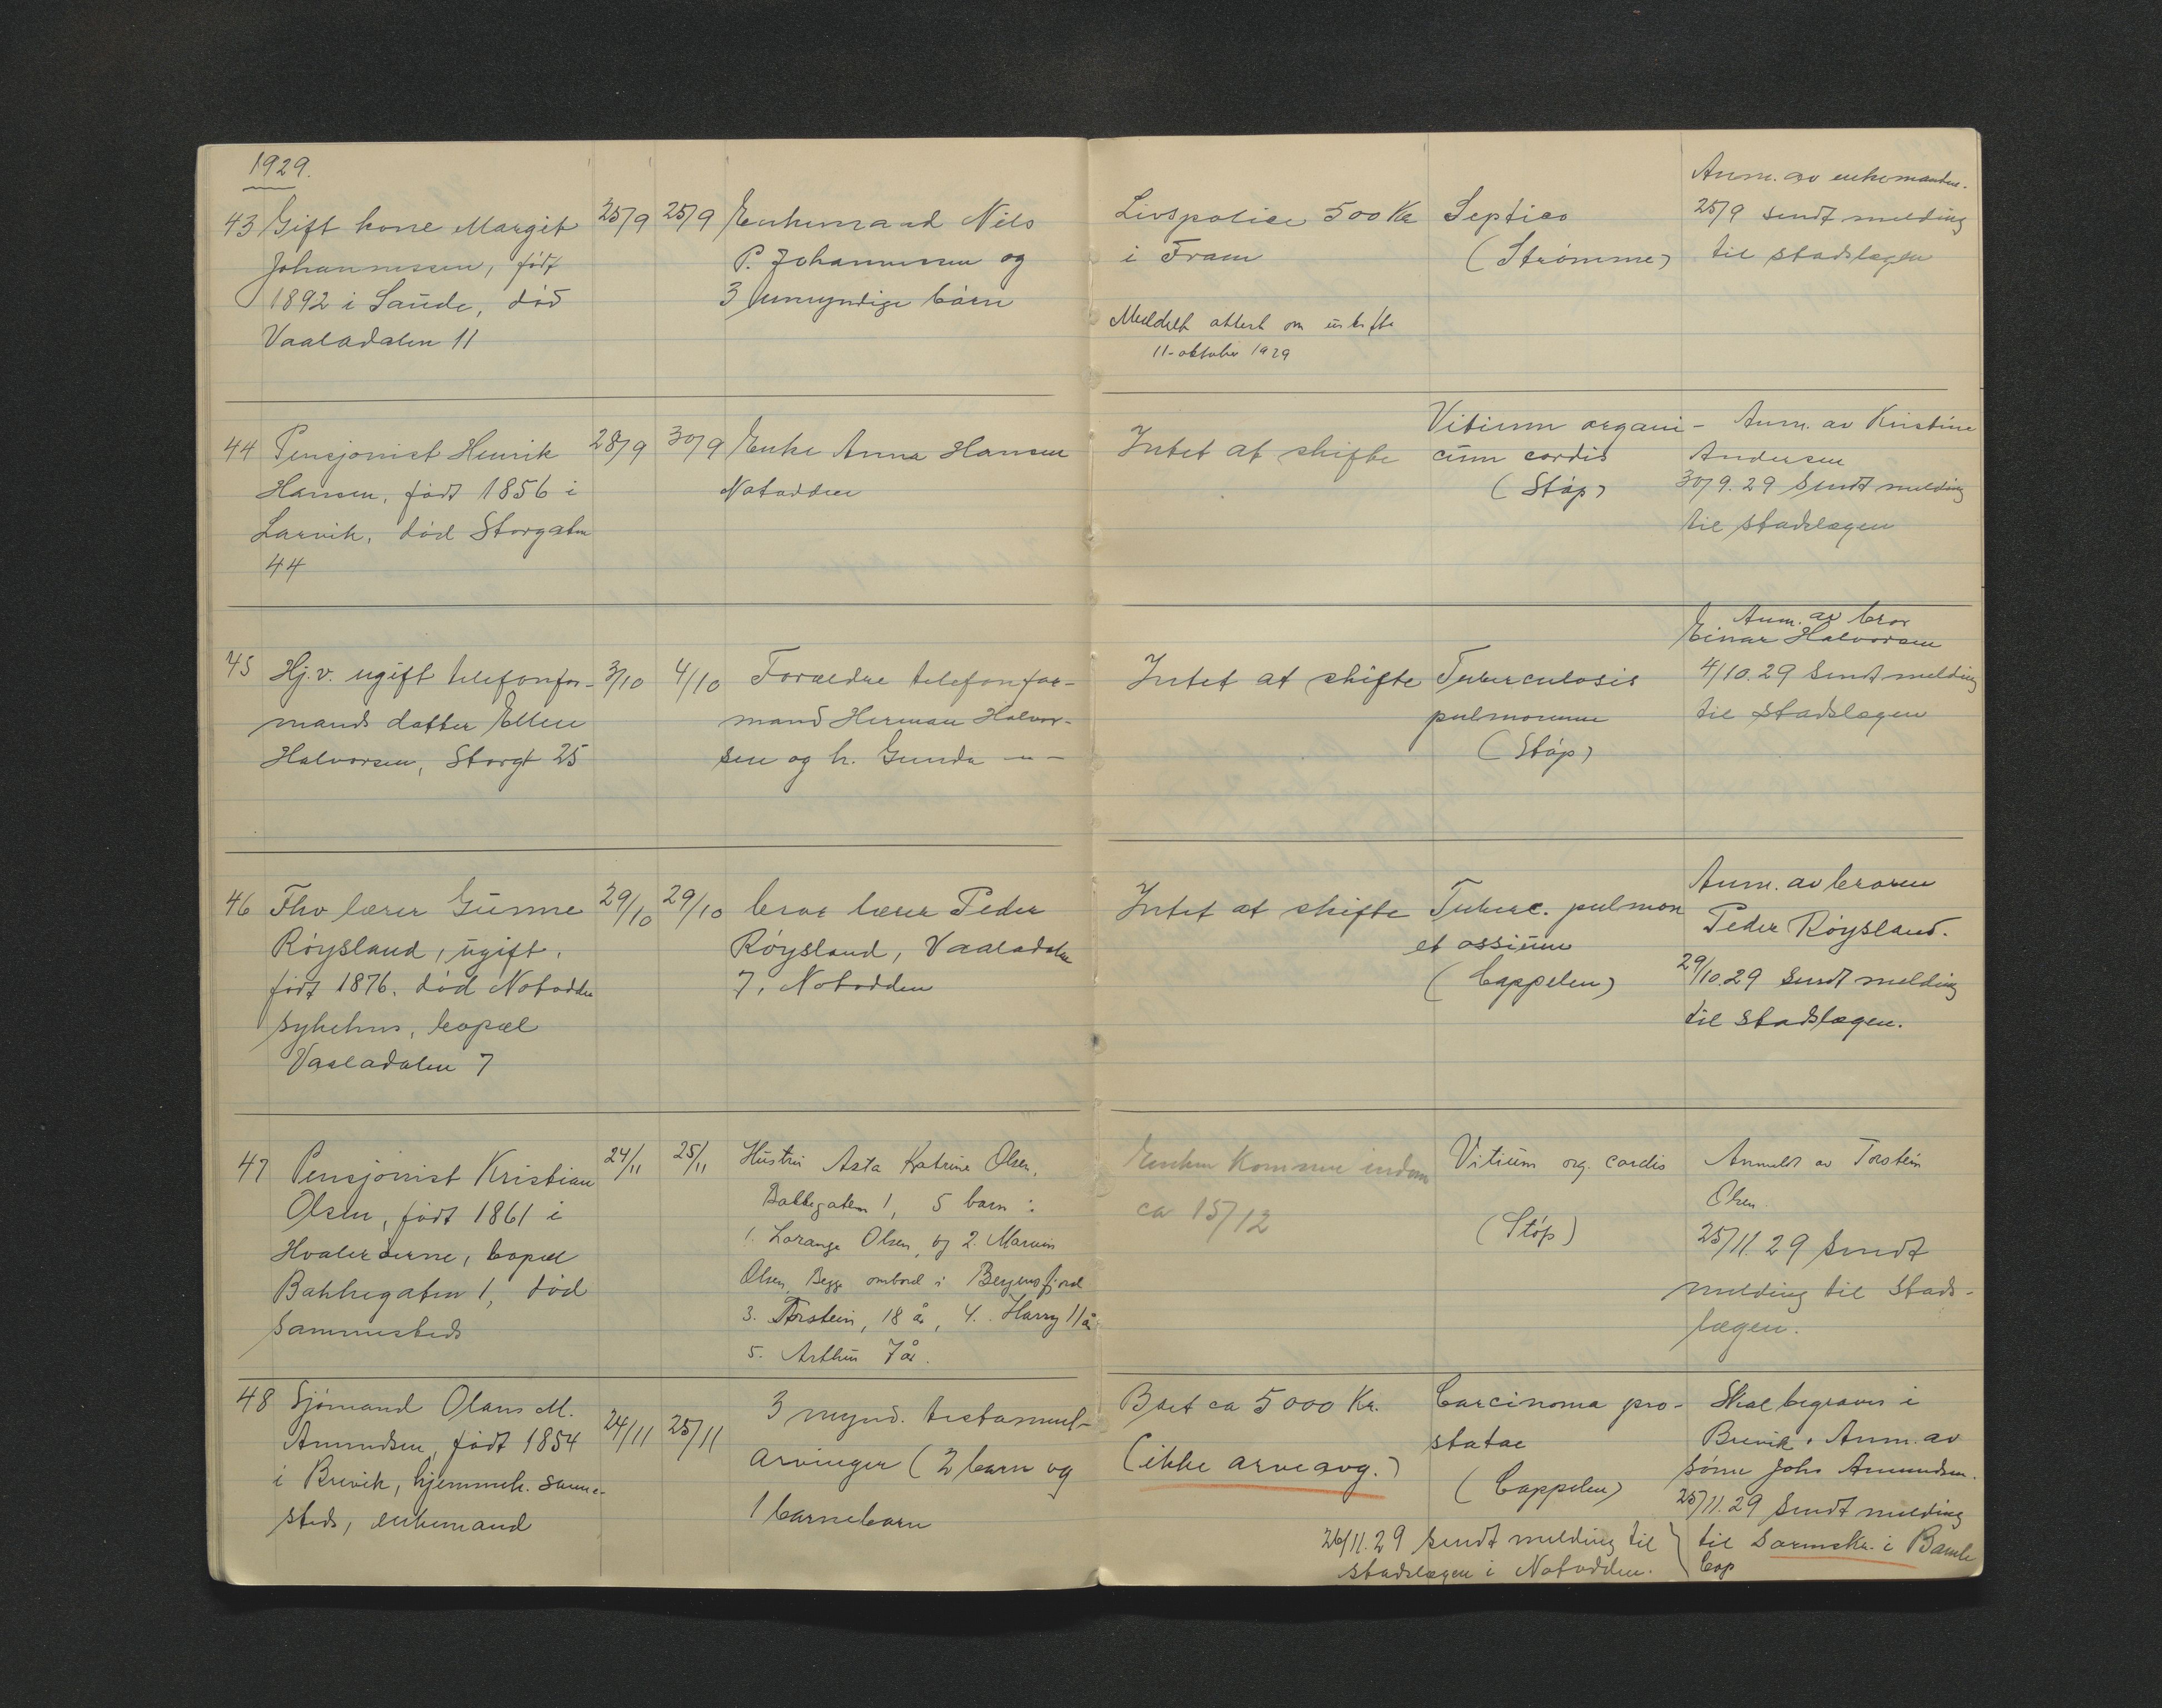 1929.
43 Gift kone Margit
Johannessen, født
1892 i Saude, død
Vaaladalen 11
25/9 25/9
Enkemand Nils
P. Johannessen og
3 umyndige børn
Livspolice 500 Kr
i Fram
Meddelt attest om uskifte
11-oktober 1929
Septico
(Strømme)
Anm. av enkemanden.
25/9 sendt melding
til stadslægen
44 Pensjonist Henrik
Hansen, født 1856 i
Larvik, død Storgaten
44
28/9 30/9
Enke Anna Hansen
Notodden
Intet at skifte
Vitium organi-
cum cordis
(Støp)
Anm. av Kristine
Andersen
30/9.29 Sendt melding
til stadslægen
45 Hj.v. ugift telefonfor-
mands datter Ellen
Halvorsen, Storgt 25
3/10 4/10
Forældre telefonfor-
mand Herman Halvor-
sen og h. Gunda -"-
Intet at skifte
Tuberculosis
pulmonum
(Støp)
Anm. av bror
Einar Halvorsen
4/10.29 Sendt melding
til stadslægen
46 Fhv lærer Gunne
Røysland, ugift,
født 1876. død Notodden
sykehus, bopæl
Vaaladalen 7
29/10 29/10
bror lærer Peder
Røysland, Vaaladalen
7, Notodden
Intet at skifte
Tuberc. pulmon
et ossium
(Cappelen)
Anm. av broren
Peder Røysland.
29/10.29 sendt melding
til stadslægen.
47 Pensjonist Kristian
Olsen, født 1861 i
Hvalerøerne, bopæl
Bakkegaten 1, død
sammesteds
24/11 25/11
Hustru Asta Katrine Olsen,
Bakkegaten 1, 5 barn:
1. Lorang Olsen, og 2. Marvin
Olsen, Begge ombord i Bergensfjord
3. Torstein, 18 år, 4. Harry 11 år
5. Arthur 7 år.
Enken kommer indom
ca 15/12
Vitium org. cordis
(Støp)
Anmeldt av Torstein
Olsen.
25/11.29 Sendt
melding til stads-
lægen.
48 Sjømand Olaus M.
Amundsen, født 1854
i Brevik, hjemmeh. samme-
steds, enkemand
24/11 25/11
3 mynd. testament-
arvinger (2 barn og
1 barnebarn
Boet ca 5000 Kr.
(ikke arveavg.)
Carcinoma pro-
statae
(Cappelen)
Skal begraves i
Brevik. Anm. av
sønn Johs Amundsen.
25/11.29 Sendt melding
til Sorenskr. i Bamble
Cop
26/11.29 sendt melding til
stadslægen i Notodden.